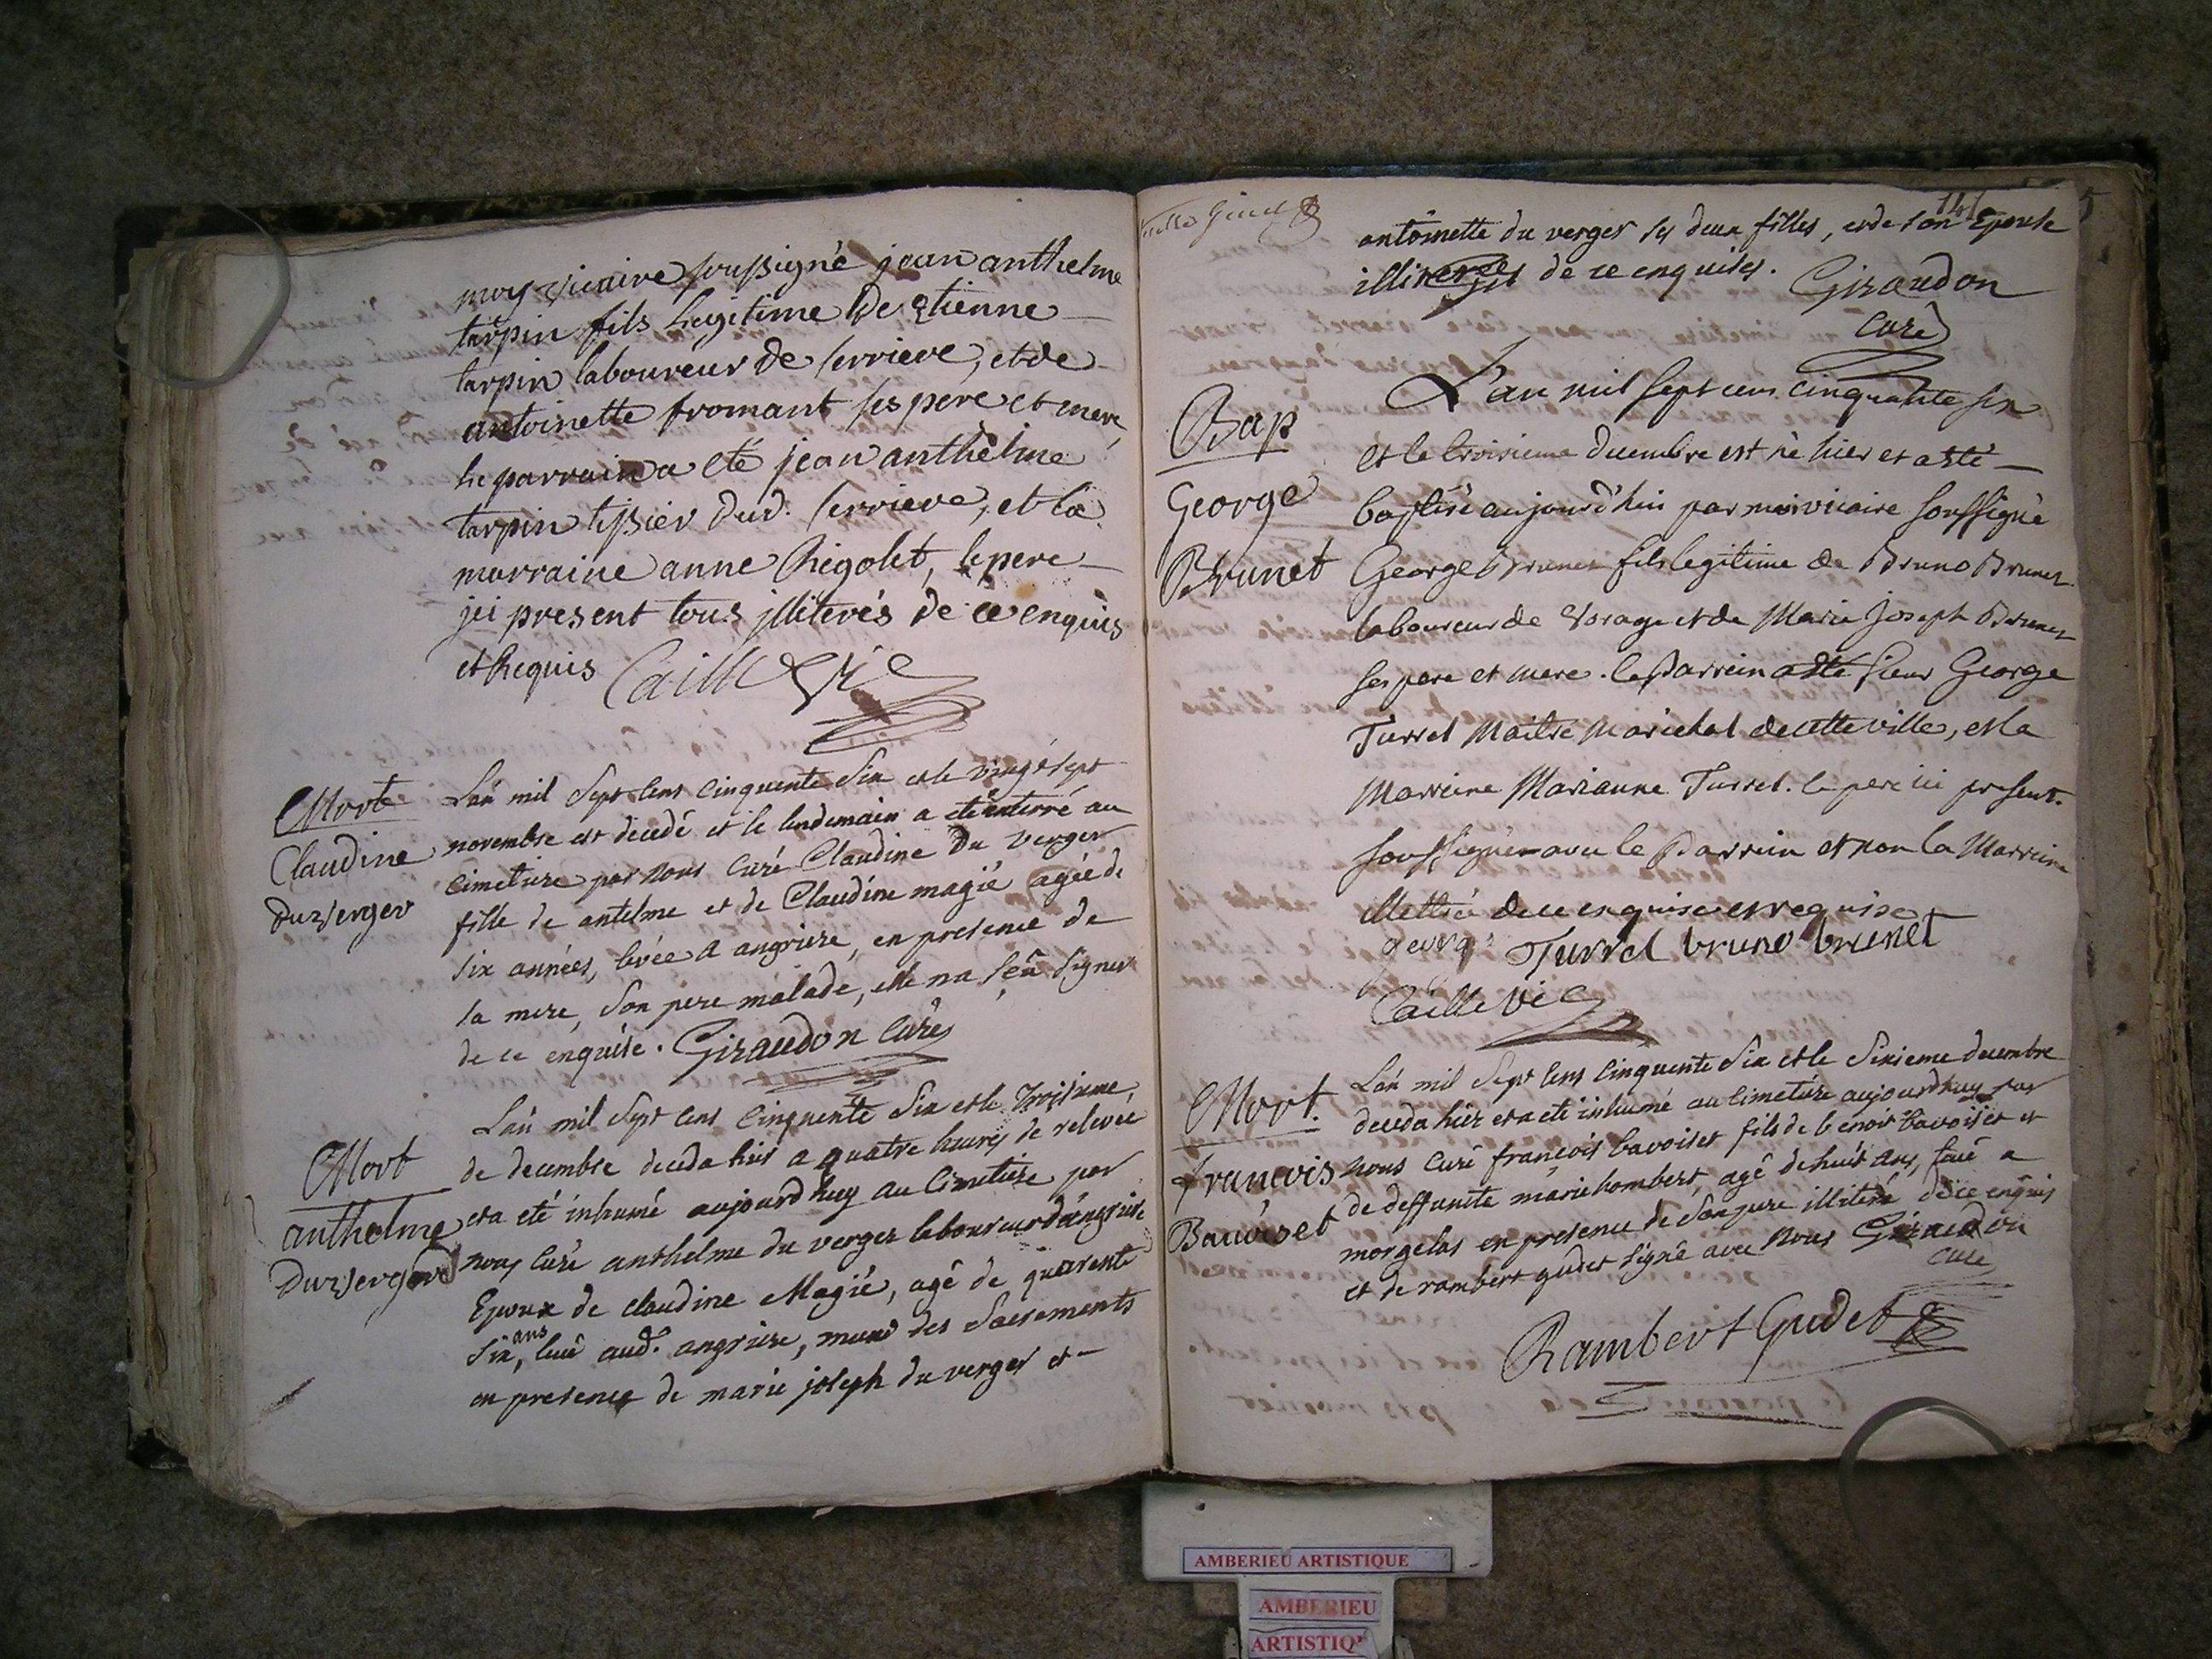 moy vicaire soussigné jean anthelme
tarpin fils legitime de etienne
tarpin laboureur de serrieve, et de
antoinette fromant ses pere et mere,
le parrain a eté jean anthelme
tarpin tissier dud. serrieve, et la
marraine anne Rigolet, le pere
ici present tous illiterés de ce enquis
et Requis Caille Vic
Morte
Claudine
Duverger
L'an mil sept cens cinquente six et le vingt sept
novembre est decedé et le lendemain a eté enterré au
cimetiere par nous curé Claudine du verger
fille de antelme et de Claudine magié agée de
six années, levée a angriere, en presence de
sa mere, son pere malade, elle na sçû signer
de ce enquise. Giraudon Curé
Mort
anthelme
Duverger
L'an mil sept cens cinquente six et le troisieme
de decembre deceda hier a quatre heures de relevée
et a eté inhumé aujourdhuy au cimetiere par
nous curé anthelme du verger laboureur d'angriere
Epoux de claudine Magié, agé de quarente
six ans, levé aud. angriere, muni des Sacrements
en presence de marie joseph du verger et
antoinette du verger ses deux filles, et de son Epouse
illiterées de ce enquises. Giraudon
Curé
Bap
George
Brunet
L'an mil sept cens cinquante six
et le troisieme decembre est né hier et a êté
baptisé aujourd'hui par moi vicaire soussigné
George Brunet fils legitime de Bruno Brunet
laboureur de Vorage et de Marie Joseph Brunet
ses pere et mere. le Parrein a êté sieur George
Turrel Maitre Marichal de cette ville, et la
Marreine Marianne Turrel. le pere ici present
soussigné avec le Parrein et non la Marreine
illettrée de ce enquise et requise
george Turrel bruno brunet
Caille Vic
Mort.
francois
Bavoiset
L'an mil sept cens cinquente six et le sixieme decembre
deceda hier et a eté inhumé au cimetiere aujourdhuy par
nous curé françois bavoiset fils de benoit bavoiset et
de deffunte marie hombert, agé de huit ans, levé a
morgelas en presence de son pere illiteré de ce enquis
et de rambert gudet signé avec nous Giraudon
curé
Rambert Gudet
AMBERIEU ARTISTIQUE
AMBERIEU
ARTISTIQ